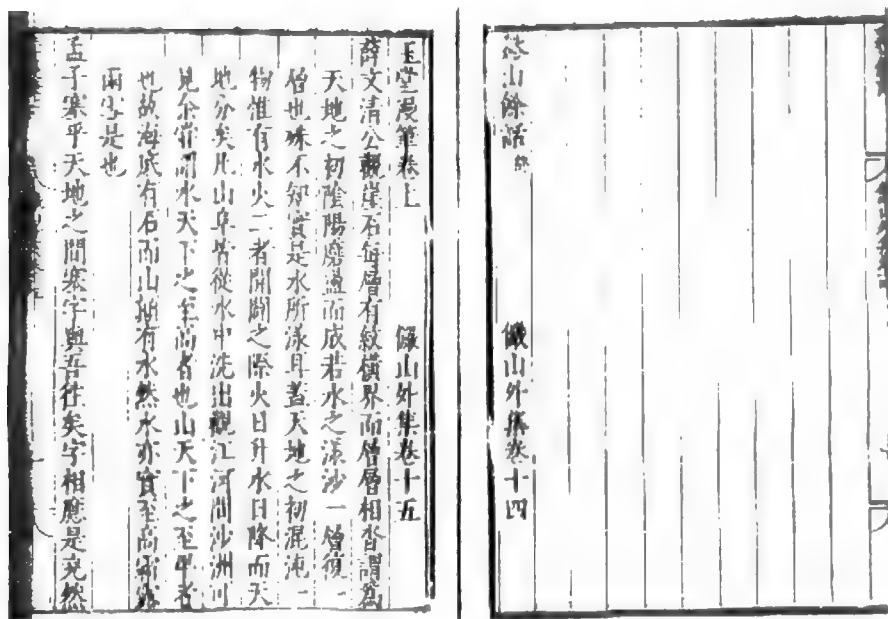 春山餘話 終
儼山外集卷十四
玉堂漫筆卷上 儼山外集卷十五
薛文清公觀崖石每層有紋橫界而層層相沓謂為
天地之初陰陽磨盪而成若水之漾沙一層復一
層也殊不知實是水所漾耳蓋天地之初混沌一
物惟有水火二者開闢之際火日升水日降而天
地分矣凡山阜皆從水中洗出觀江河間沙洲可
見余嘗謂水天下之至高者也山天下之至卑者
也故海底有石而山頂有水然水亦實至高雨露
雨雪是也
孟子塞乎天地之間塞字與吾往矣字相應是克然